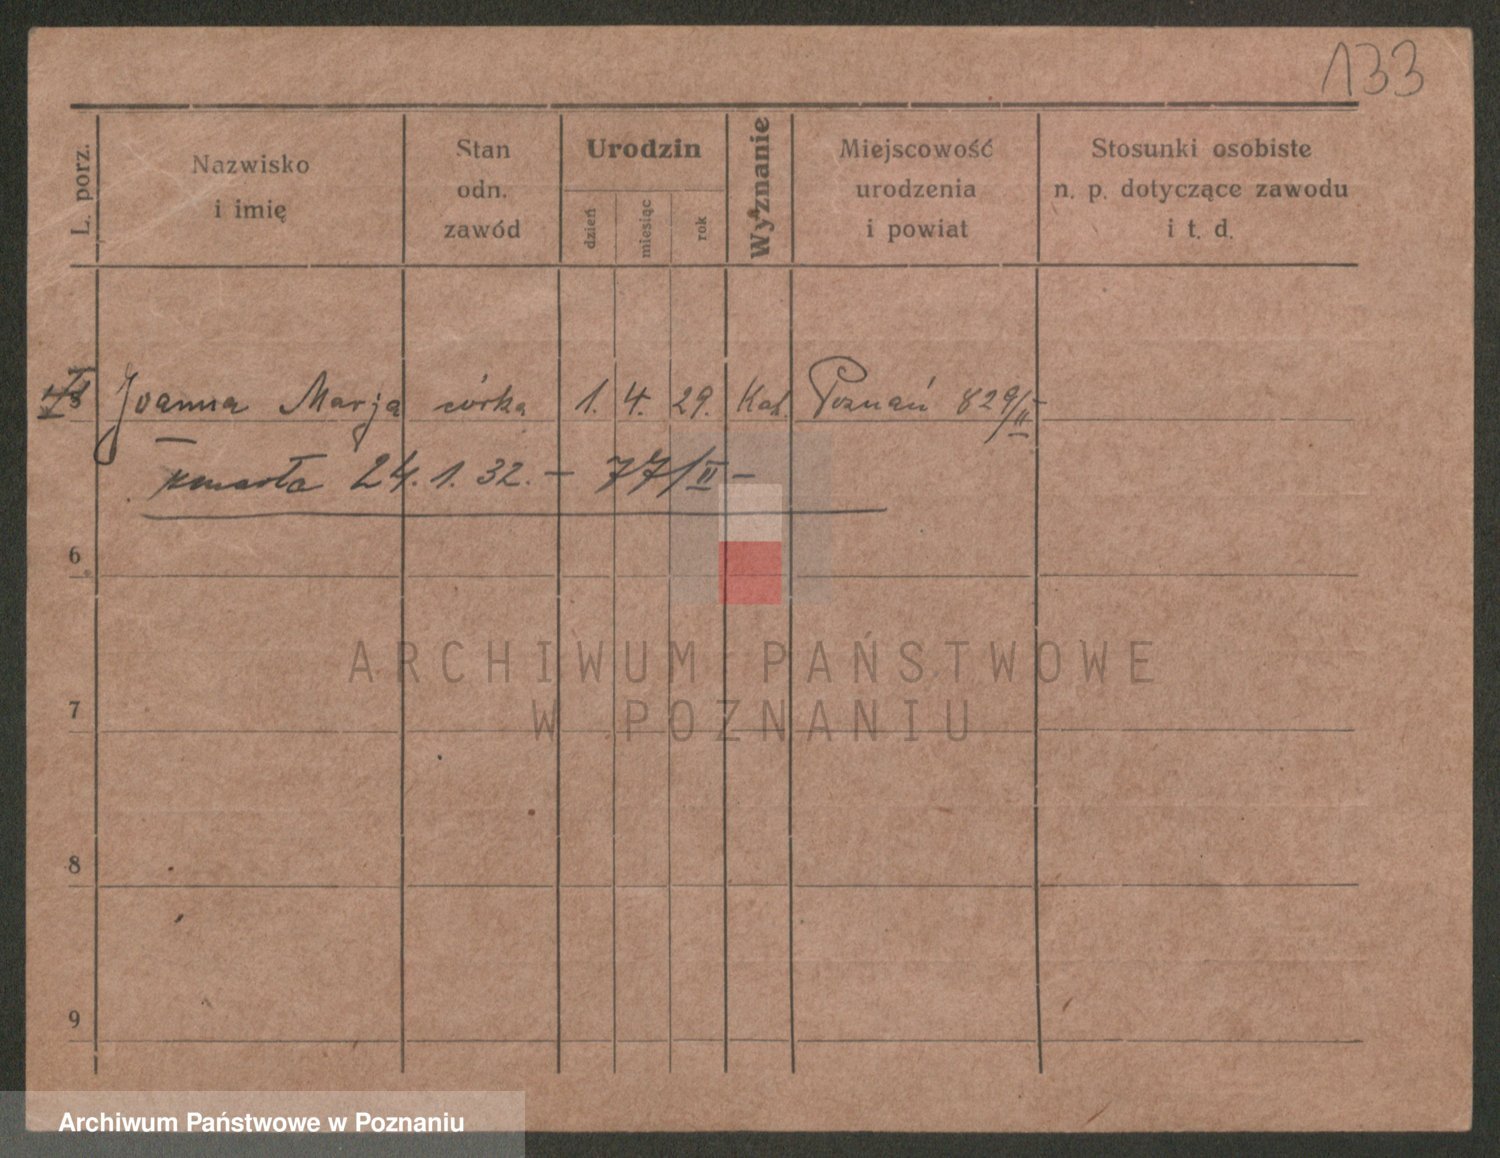 133
L. porz.
Nazwisko
i imię
Stan
odn.
zawód
Urodzin
dzień
miesiąc
rok
Wyznanie
Miejscowość
urodzenia
i powiat
Stosunki osobiste
n. p. dotyczące zawodu
i t. d.
Joanna Marja córka 1. 4. 29. Kat. Poznań 829/II
zmarła 24.1.32. – 77/II –
6
7
8
9
ARCHIWUM PAŃSTWOWE
W POZNANIU
Archiwum Państwowe w Poznaniu